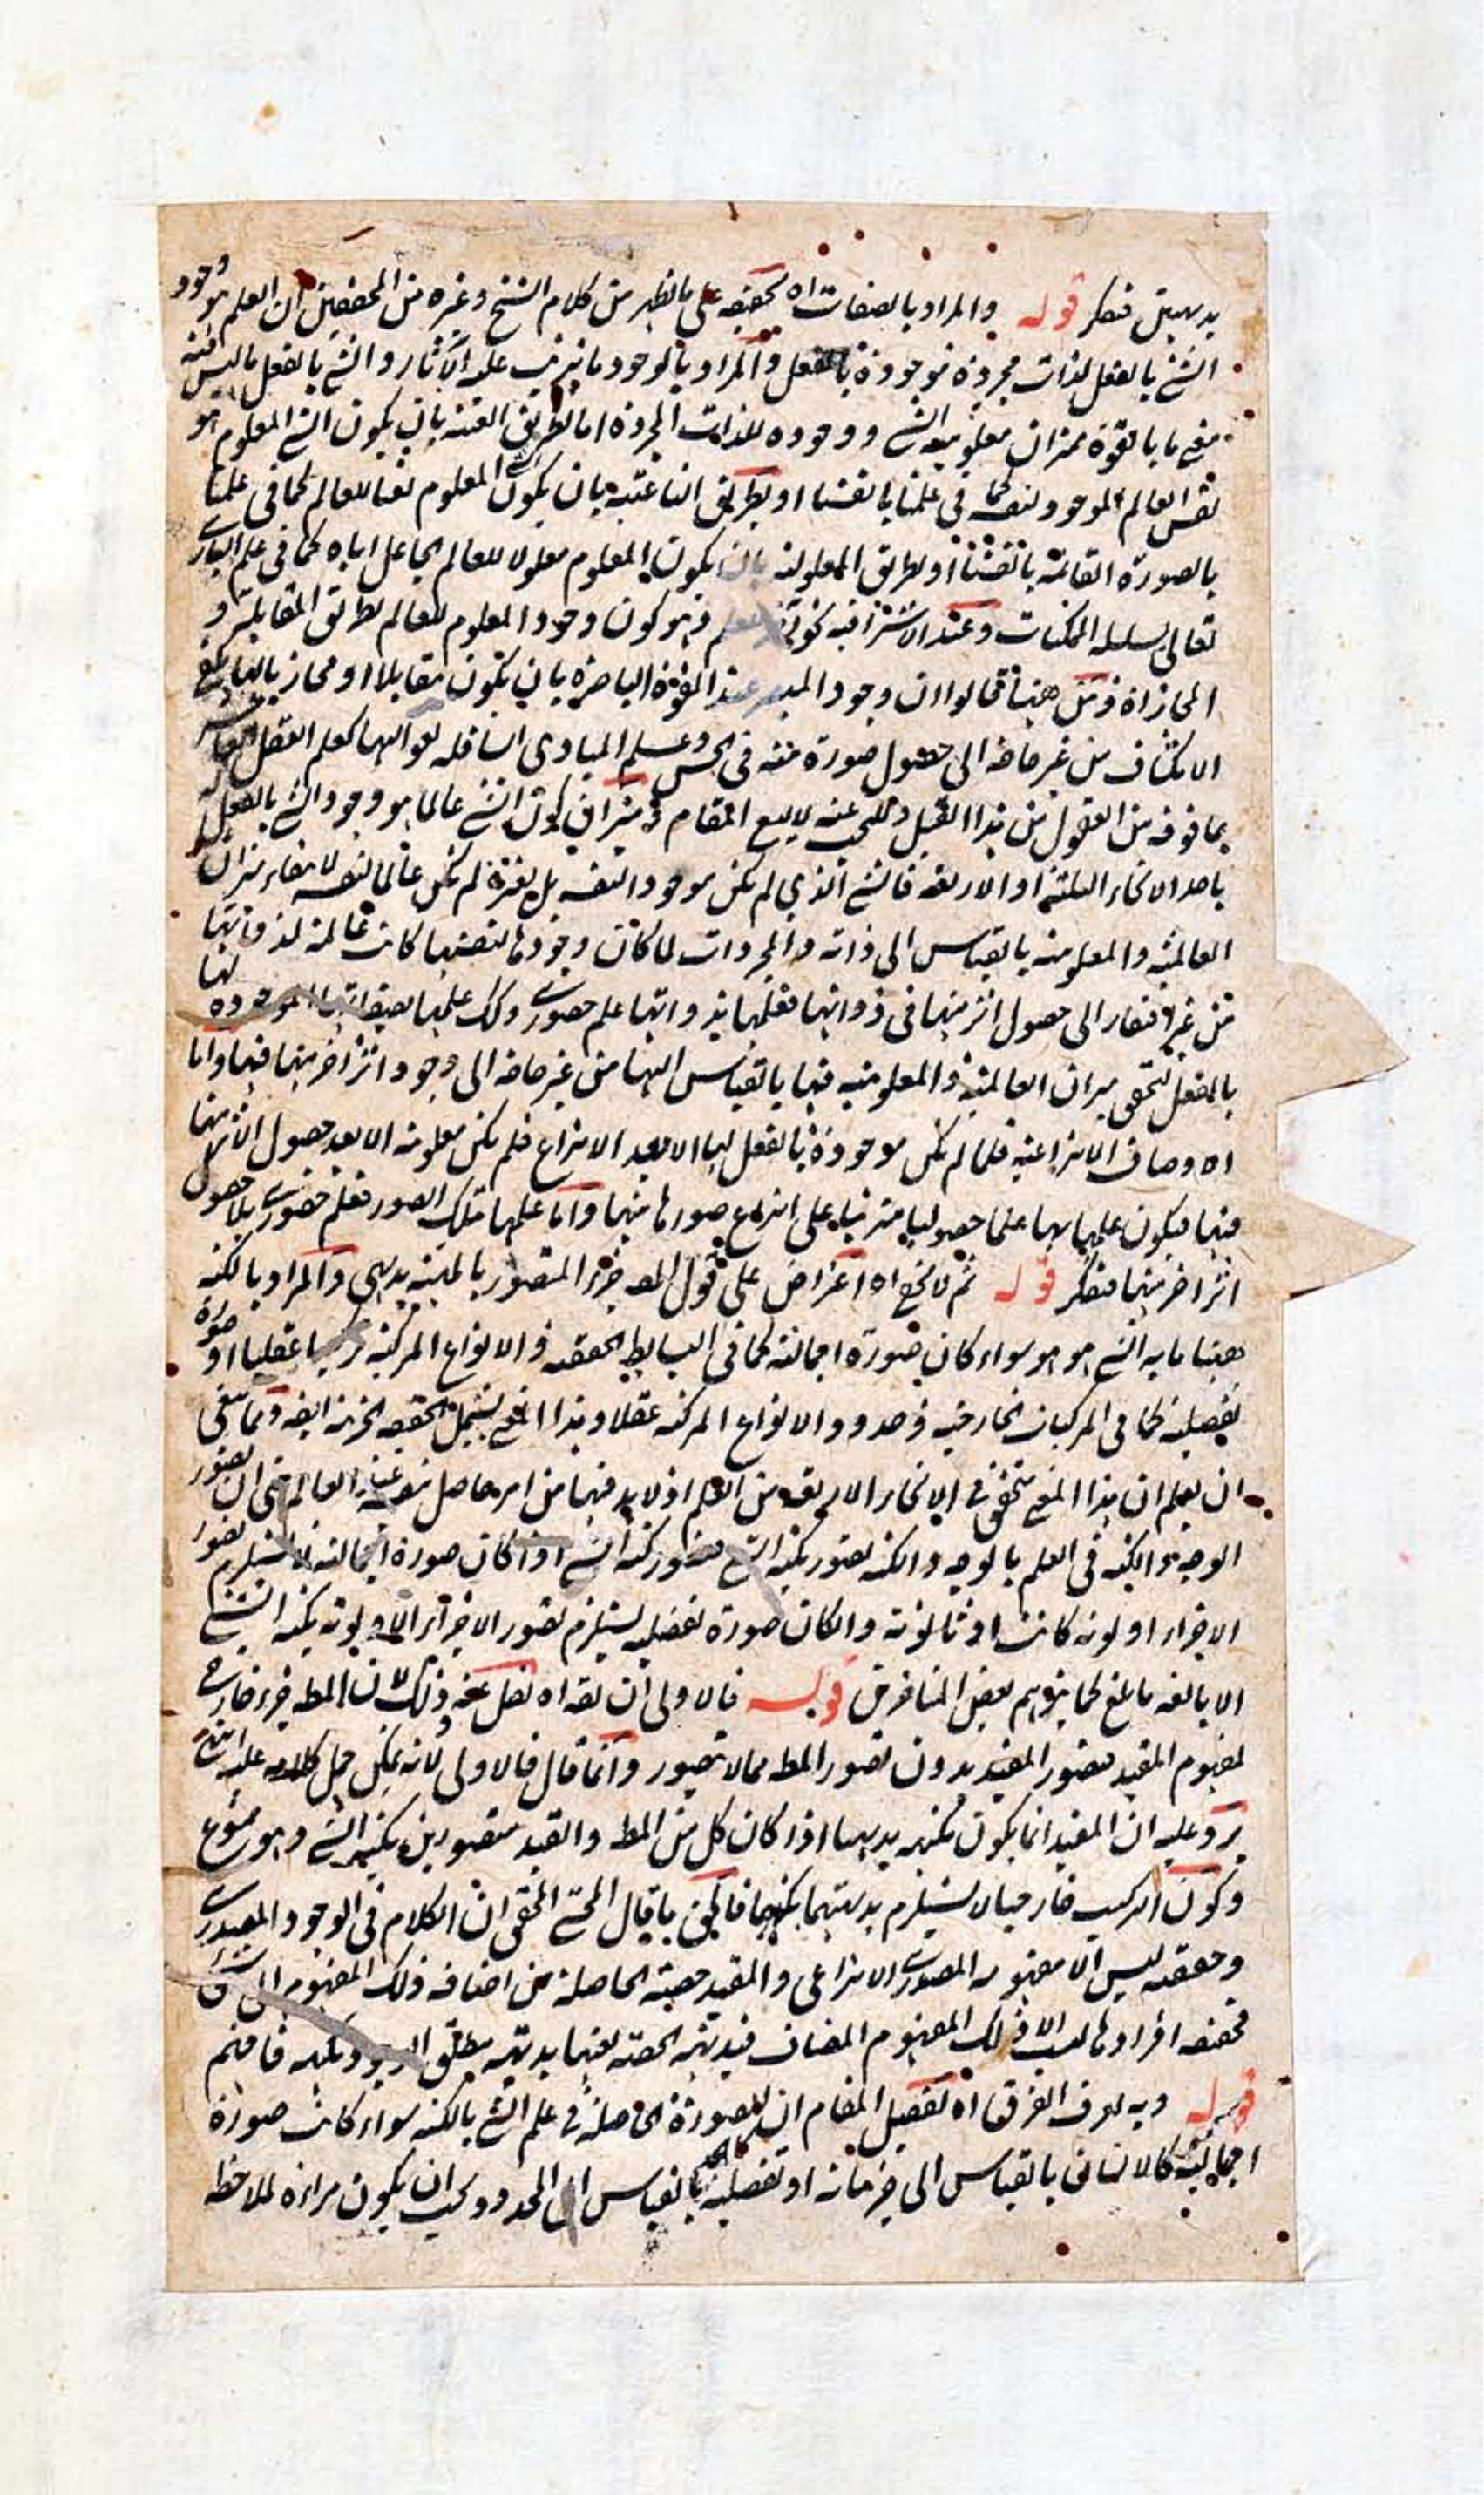 بديهيتين فتفكر قوله والمراد بالصفات اه تحقيقه على ما يظهر من كلام الشيخ وغيره من المحققين ان العلم هو وجود
الشئ بالفعل لذات مجردة موجودة بالفعل والمراد بالوجود ما يترتب عليه الآثار والشئ بالفعل ما ليس فيه
معنى ما بالقوة فميزان معلومية الشئ ووجوده للذات المجردة اما بطريق العينية بان يكون الشئ المعلوم هو
نفس العالم الموجود لنفسه كما في علمنا بانفسنا او بطريق الناعتية بان يكون المعلوم نعتا للعالم كما في علمنا
بالصورة القائمة بانفسنا او بطريق المعلولية بان يكون المعلوم معلولا للعالم الجاعل اياه كما في علم الباري
تعالى بسلسلة الممكنات وعند الاشراقية نحو آخر للعلم وهو كون وجود المعلوم للعالم بطريق المقابلة و
المحاذاة ومن هنا قالوا ان وجود المبصر عند القوة الباصرة بان يكون مقابلا او محاذيا لها يكفي
الانكشاف من غير حاجة الى حصول صورة منه في الحس وعلم المبادي السافلة لعواليها كعلم العقل العاشر
بما فوقه من العقول من هذا القبيل والبحث عنه لا يسع المقام فميزان كون الشئ عالما هو وجود الشئ بالفعل له
باحد الانحاء الثلثة او الاربعة فالشئ الذي لم يكن موجودا لنفسه بل لغيره لم يكن عالما لنفسه لانتفاء ميزان
العالمية والمعلومية بالقياس الى ذاته والمجردات لما كان وجودها لنفسها كانت عالمة لذواتها
من غير افتقار الى حصول اثر منها في ذواتها فعلمها بذواتها علم حضوري وكذلك علمها بصفاتها الموجودة لها
بالفعل لتحقق ميزان العالمية والمعلومية فيها بالقياس اليها من غير حاجة الى وجود اثر آخر منها فيها واما
الاوصاف الانتزاعية فلما لم تكن موجودة بالفعل لها الا بعد الانتزاع فلم تكن معلومة الا بعد حصول الاثر منها
فيها فيكون علمها بها علما حصوليا مترتبا على انتزاع صورها منها واما علمها بتلك الصور فعلم حضوري بلا حصول
اثر آخر منها فتفكر قوله ثم لا يخفى اه اعتراض على قول المص جزء المتصور بالكنه بديهي والمراد بالكنه
ههنا ما به الشئ هو هو سواء كان صورة اجمالية كما في البسايط الحقيقية والانواع المركبة تركيبا عقليا او صورة
تفصيلية كما في المركبات الخارجية وحدود الانواع المركبة عقلا وهذا المعنى يشمل الحقيقة الجزئية ايضا ومما ينبغي
ان يعلم ان هذا المعنى متحقق في الانحاء الاربعة من العلم اذ لا بد فيها من امر حاصل بنفسه عند العالم حتى ان تصور
الوجه والكنه في العلم بالوجه والكنه تصور بكنه الشئ فتصور كنه الشئ اذا كان صورة اجمالية لا يستلزم تصور
الاجزاء اولوية كانت او ثانوية وان كان صورة تفصيلية يستلزم تصور الاجزاء الاولوية بكنه الشئ
الا بالغة ما بلغ كما يتوهم بعض المتأخرين قوله فالاولى ان يقه اه نقل عنه وذلك لان المط جزء خارجي
لمفهوم المقيد فتصور المقيد بدون تصور المط مما لا يتصور وانما قال فالاولى لانه يمكن حمل كلامه عليه انتهى
يرد عليه ان المقيد انما يكون بكنهه بديهيا اذا كان كل من المط والقيد متصورين بكنه الشئ وهو ممنوع
وكون التركيب خارجيا لا يستلزم بداهتهما بكنههما فالحق ما قال المحشي المحقق ان الكلام في الوجود المصدري
وحقيقته ليس الا مفهومه المصدري الانتزاعي والمقيد حصته الحاصلة من اضافة ذلك المفهوم الى شئ
فحقيقة افرادها ليست الا ذلك المفهوم المضاف فبديهية الحصة بعينها بديهية مطلق الوجود بكنهه فافهم
قوله وبه يعرف الفرق اه تفصيل المقام ان الصورة الحاصلة في علم الشئ بالكنه سواء كانت صورة
اجمالية كالانسان بالقياس الى جزئياته او تفصيلية كالحد بالقياس الى المحدود يجب ان يكون مرآة لملاحظة